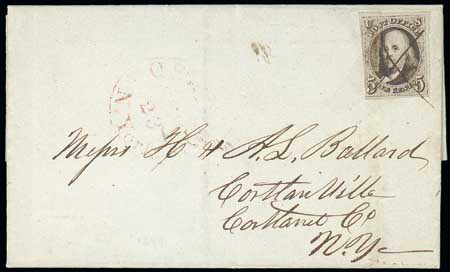 POST OFFICE
FIVE CENTS
5 5
Messrs H & A. L. Ballard
Cortland Ville
Cortland Co
N. Y.